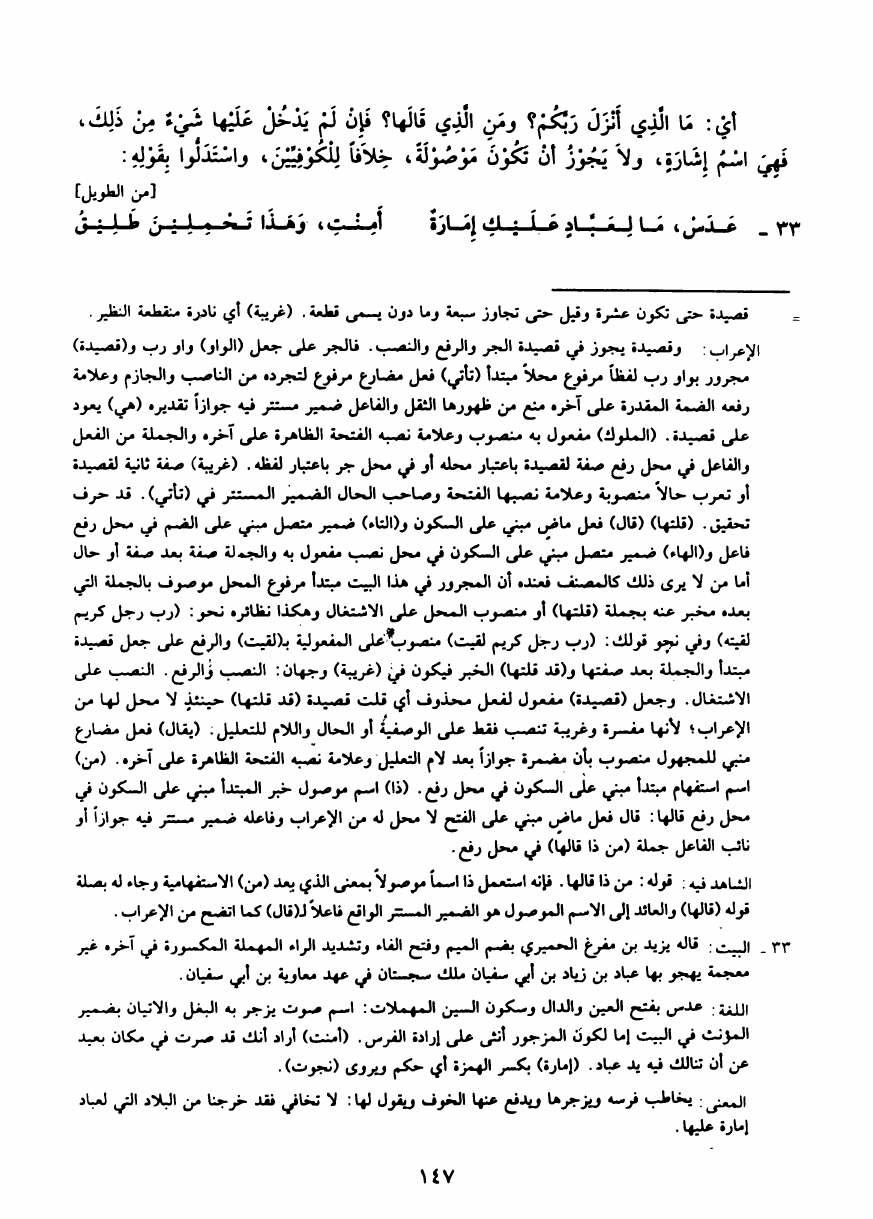 أيْ: مَا الَّذِي أَنْزَلَ رَبُّكُمْ؟ ومَنِ الَّذِي قَالَها؟ فَإِنْ لَمْ يَدْخُلْ عَلَيْها شَيْءٌ مِنْ ذَلِكَ،
فَهِيَ اسْمُ إِشَارَةٍ، ولاَ يَجُوْزُ أنْ تَكُوْنَ مَوْصُوْلَةً، خِلاَفاً لِلْكُوْفِيِّيْنَ، واسْتَدَلُّوا بِقَوْلِهِ:
[من الطويل]
٣٣ ـ عَـدَسْ، مَـا لِـعَـبَّـادٍ عَـلَـيْـكِ إِمَـارَةٌ أَمِـنْـتِ، وَهَـذَا تَـحْـمِـلِـيْـنَ طَـلِـيْـقُ
= قصيدة حتى تكون عشرة وقيل حتى تجاوز سبعة وما دون يسمى قطعة. (غريبة) أي نادرة منقطعة النظير.
الإعراب: وقصيدة يجوز في قصيدة الجر والرفع والنصب. فالجر على جعل (الواو) واو رب و(قصيدة)
مجرور بواو رب لفظاً مرفوع محلاً مبتدأ (تأتي) فعل مضارع مرفوع لتجرده من الناصب والجازم وعلامة
رفعه الضمة المقدرة على آخره منع من ظهورها الثقل والفاعل ضمير مستتر فيه جوازاً تقديره (هي) يعود
على قصيدة. (الملوك) مفعول به منصوب وعلامة نصبه الفتحة الظاهرة على آخره والجملة من الفعل
والفاعل في محل رفع صفة لقصيدة باعتبار محله أو في محل جر باعتبار لفظه. (غريبة) صفة ثانية لقصيدة
أو تعرب حالاً منصوبة وعلامة نصبها الفتحة وصاحب الحال الضمير المستتر في (تأتي). قد حرف
تحقيق. (قلتها) (قال) فعل ماضٍ مبني على السكون و(التاء) ضمير متصل مبني على الضم في محل رفع
فاعل و(الهاء) ضمير متصل مبني على السكون في محل نصب مفعول به والجملة صفة بعد صفة أو حال
أما من لا يرى ذلك كالمصنف فعنده أن المجرور في هذا البيت مبتدأ مرفوع المحل موصوف بالجملة التي
بعده مخبر عنه بجملة (قلتها) أو منصوب المحل على الاشتغال وهكذا نظائره نحو: (رب رجل كريم
لقيته) وفي نحو قولك: (رب رجل كريم لقيت) منصوب على المفعولية بـ(لقيت) والرفع على جعل قصيدة
مبتدأ والجملة بعد صفتها و(قد قلتها) الخبر فيكون في (غريبة) وجهان: النصب والرفع. النصب على
الاشتغال. وجعل (قصيدة) مفعول لفعل محذوف أي قلت قصيدة (قد قلتها) حينئذٍ لا محل لها من
الإعراب؛ لأنها مفسرة وغريبة تنصب فقط على الوصفية أو الحال واللام للتعليل. (يقال) فعل مضارع
منبي للمجهول منصوب بأن مضمرة جوازاً بعد لام التعليل وعلامة نصبه الفتحة الظاهرة على آخره. (من)
اسم استفهام مبتدأ مبني على السكون في محل رفع. (ذا) اسم موصول خبر المبتدأ مبني على السكون في
محل رفع قالها: قال فعل ماضٍ مبني على الفتح لا محل له من الإعراب وفاعله ضمير مستتر فيه جوازاً أو
نائب الفاعل جملة (من ذا قالها) في محل رفع.
الشاهد فيه: قوله: من ذا قالها. فإنه استعمل ذا اسماً موصولاً بمعنى الذي بعد (من) الاستفهامية وجاء له بصلة
قوله (قالها) والعائد إلى الاسم الموصول هو الضمير المستتر الواقع فاعلاً لـ(قال) كما اتضح من الإعراب.
٣٣ ـ البيت: قاله يزيد بن مفرغ الحميري بضم الميم وفتح الفاء وتشديد الراء المهملة المكسورة في آخره غير
معجمة يهجو بها عباد بن زياد بن أبي سفيان ملك سجستان في عهد معاوية بن أبي سفيان.
اللغة: عدس بفتح العين والدال وسكون السين المهملات: اسم صوت يزجر به البغل والاتيان بضمير
المؤنث في البيت إما لكون المزجور أنثى على إرادة الفرس. (أمنت) أراد أنك قد صرت في مكان بعيد
عن أن تنالك فيه يد عباد. (إمارة) بكسر الهمزة أي حكم ويروى (نجوت).
المعنى: يخاطب فرسه ويزجرها ويدفع عنها الخوف ويقول لها: لا تخافي فقد خرجنا من البلاد التي لعباد
إمارة عليها.
١٤٧